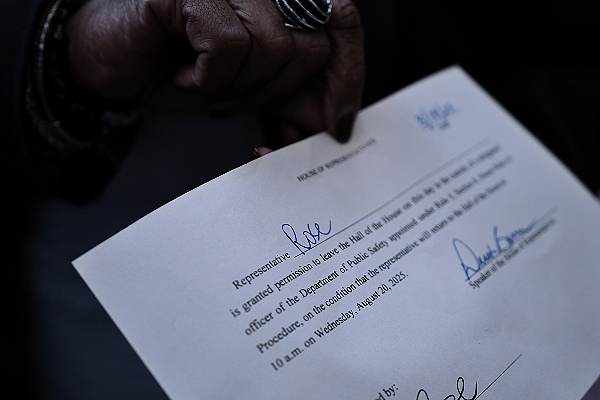 8/18/25
HOUSE OF REPRESENTATIVES
Representative Rose
is granted permission to leave the Hall of the House on this day in the custody of a designated
officer of the Department of Public Safety appointed under Rule 5, Section 8, House Rules of
Procedure, on the condition that the representative will return to the Hall of the House at
10 a.m. on Wednesday, August 20, 2025.
Speaker of the House of Representatives
ed by: